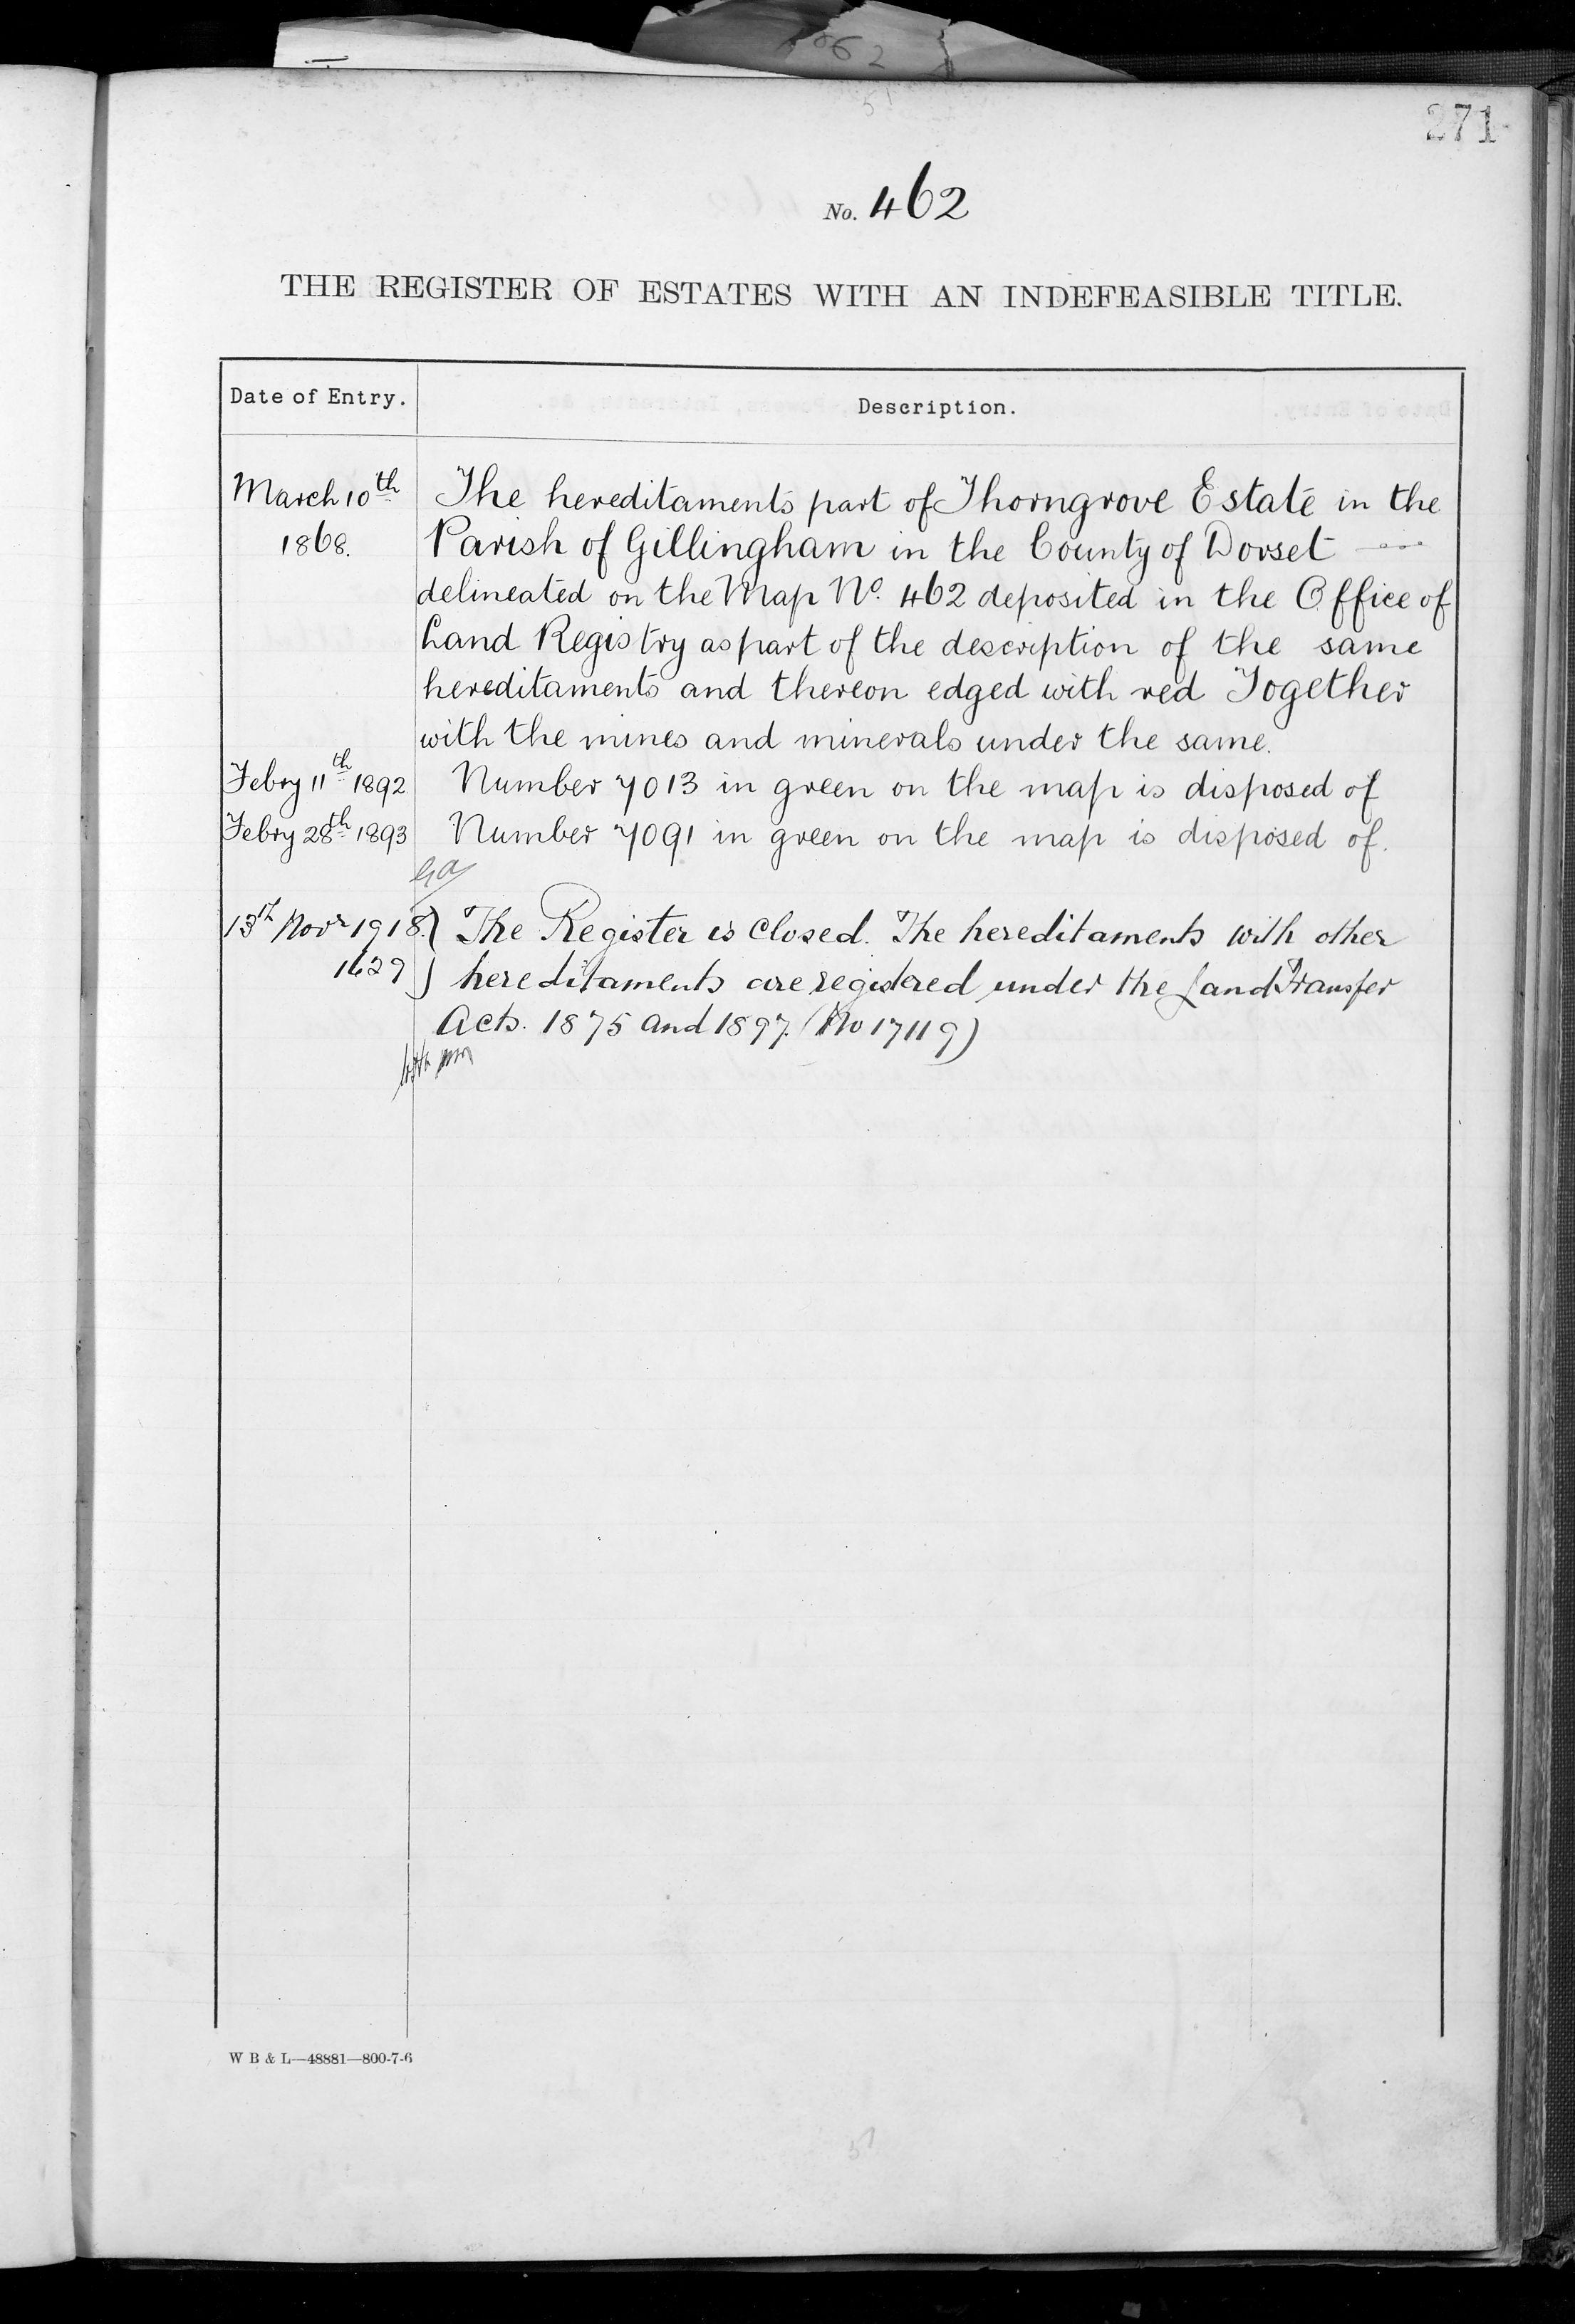 271
No. 462
THE REGISTER OF ESTATES WITH AN INDEFEASIBLE TITLE.
Date of Entry. Description.
March 10th The hereditaments part of Thorngrove Estate in the
1868. Parish of Gillingham in the County of Dorset
delineated on the Map No. 462 deposited in the Office of
Land Registry as part of the description of the same
hereditaments and thereon edged with red Together
with the mines and minerals under the same.
Febry 11th 1892 Number 7013 in green on the map is disposed of
Febry 28th 1893 Number 7091 in green on the map is disposed of.
13th Novr 1918. } The Register is Closed. The hereditaments with other
1629 } hereditaments are registered under the Land Transfer
Acts. 1875 and 1897. (No 17119)
W B & L—48881—800-7-6